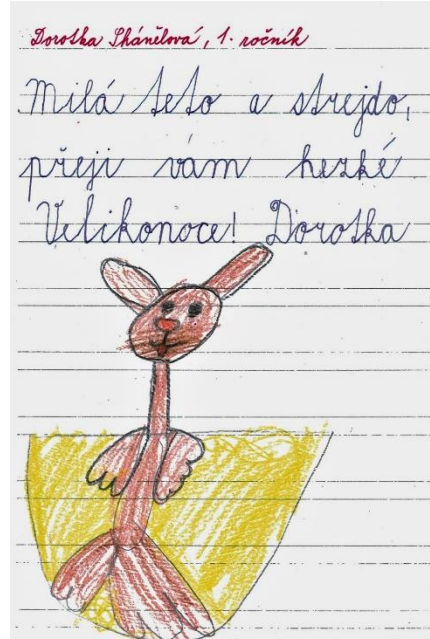 Dorotka Skánělová, 1. ročník
Milá teto a strejdo,
přeji vám hezké
Velikonoce! Dorotka